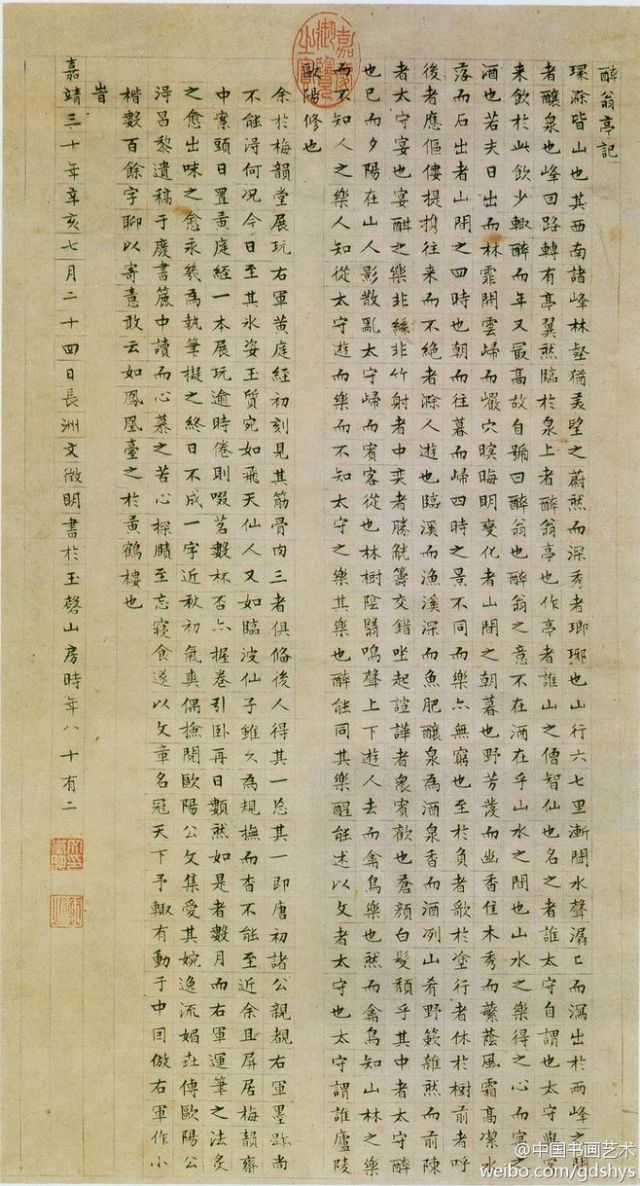 醉翁亭記
環滁皆山也其西南諸峰林壑猶美望之蔚然而深秀者瑯琊也山行六七里漸聞水聲潺〻而瀉出於兩峰之間
者釀泉也峰回路轉有亭翼然臨於泉上者醉翁亭也作亭者誰山之僧智仙也名之者誰太守自謂也太守與客
來飲於此飲少輒醉而年又最高故自號曰醉翁也醉翁之意不在酒在乎山水之間也山水之樂得之心而寓之
酒也若夫日出而林霏開雲歸而巖穴暝晦明變化者山間之朝暮也野芳發而幽香佳木秀而繁蔭風霜高潔水
落而石出者山間之四時也朝而往暮而歸四時之景不同而樂亦無窮也至於負者歌於塗行者休於樹前者呼
後者應傴僂提攜往來而不絕者滁人遊也臨溪而漁溪深而魚肥釀泉為酒泉香而酒冽山肴野蔌雜然而前陳
者太守宴也宴酣之樂非絲非竹射者中奕者勝觥籌交錯坐起諠譁者眾賓歡也蒼顏白髮頹乎其中者太守醉
也已而夕陽在山人影散亂太守歸而賓客從也林樹陰翳鳴聲上下遊人去而禽鳥樂也然而禽鳥知山林之樂
而不知人之樂人知從太守遊而樂而不知太守之樂其樂也醉能同其樂醒能述以文者太守也太守謂誰廬陵
歐陽修也
余於梅韻堂展玩右軍黃庭經初刻見其筋骨肉三者俱備後人得其一忘其一即唐初諸公親覩右軍墨跡尚
不能淂何況今日至其水姿玉質宛如飛天仙人又如臨波仙子雖久為規撫而杳不能至近余且屏居梅韻齋
中案頭日置黃庭經一本展玩逾時倦則啜茗數杯否亦握卷引臥再日數然如是者數月而右軍運筆之法炙
之愈出味之愈永茲為執筆擬之終日不成一字近秋初氣爽偶撿閱歐陽公文集愛其婉逸流媚世傳歐陽公
淂昌黎遺稿于廢書簏中讀而心慕之苦心探賾至忘寢食遂以文章名冠天下予輒有動于中因倣右軍作小
楷數百餘字聊以寄意敢云如鳳凰臺之於黃鶴樓也
旹
嘉靖三十年辛亥七月二十四日長洲文徵明書於玉磬山房時年八十有二
嘉慶御覽之寶
@中国书画艺术
weibo.com/gdshys